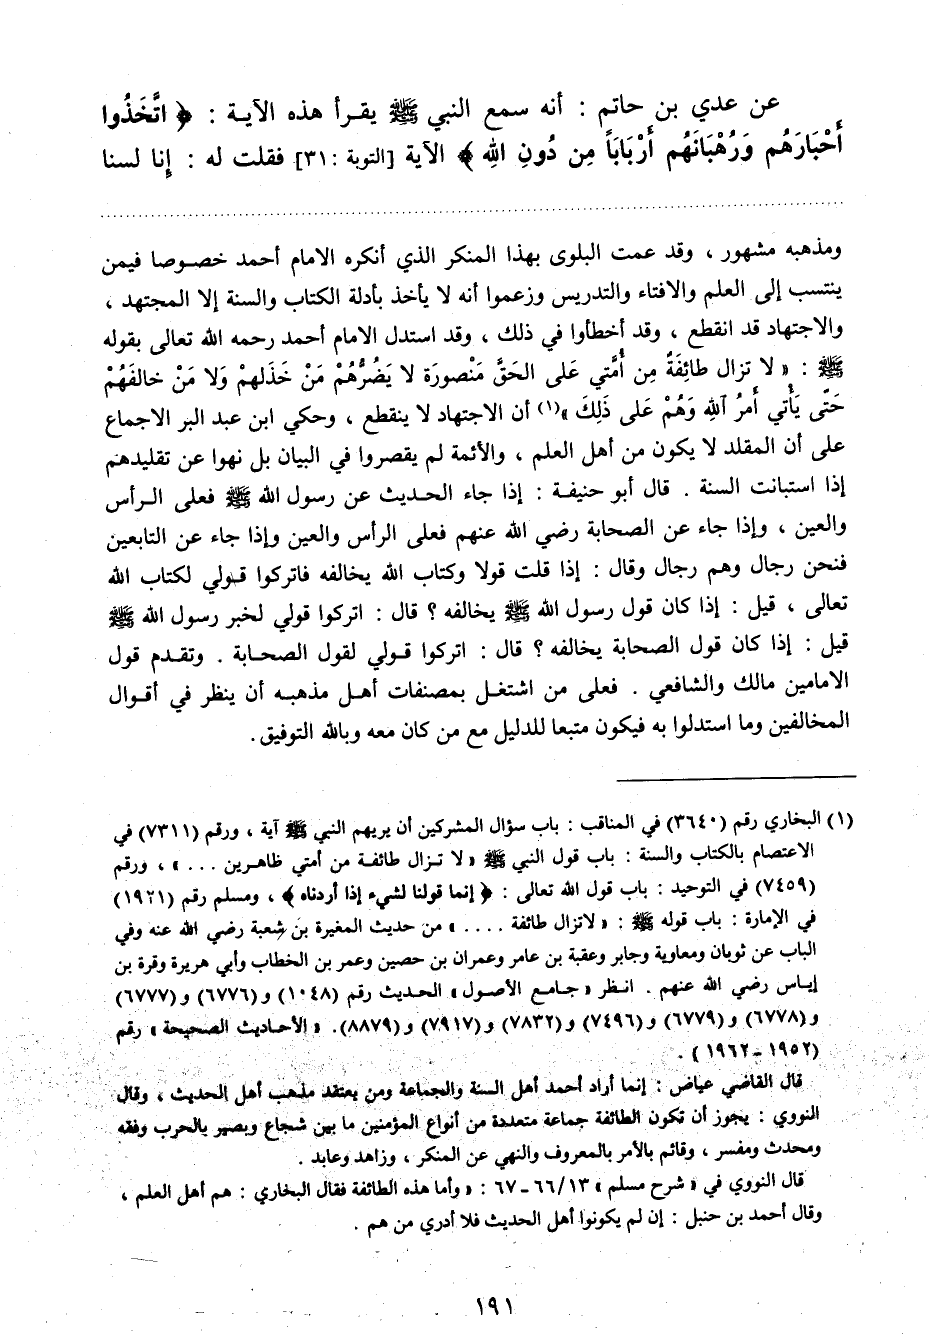 عن عدي بن حاتم : أنه سمع النبي ﷺ يقـرأ هذه الآيـة : ﴿ اتَّخَذُوا
أَحْبَارَهُم وَرُهْبَانَهُم أَرْبَابَاً مِن دُونِ اللهِ ﴾ الآية [التوبة : ٣١] فقلت له : إنا لسنا
ومذهبه مشهور ، وقد عمت البلوى بهذا المنكر الذي أنكره الامام أحمد خصـوصا فيمن
ينتسب إلى العلم والافتاء والتدريس وزعموا أنه لا يأخذ بأدلة الكتاب والسنة إلا المجتهد ،
والاجتهاد قد انقطع ، وقد أخطأوا في ذلك ، وقد استدل الامام أحمد رحمه الله تعالى بقوله
ﷺ : « لا تزال طائِفَةٌ مِن أُمَّتي عَلى الحَقّ مَنْصورَة لا يَضُرُّهُمْ مَنْ خَذَلهمْ وَلا مَنْ خالفَهُمْ
حَتّى يَأْتي أَمرُ اللهِ وَهُمْ عَلى ذَلِكَ »(١) أن الاجتهاد لا ينقطع ، وحكي ابن عبد البر الاجماع
على أن المقلد لا يكون من أهل العلم ، والأئمة لم يقصروا في البيان بل نهوا عن تقليدهم
إذا استبانت السنة . قال أبو حنيفـة : إذا جاء الحـديث عن رسول الله ﷺ فعلى الـرأس
والعين ، وإذا جاء عن الصحابة رضي الله عنهم فعلى الرأس والعين وإذا جاء عن التابعين
فنحن رجال وهم رجال وقال : إذا قلت قولا وكتاب الله يخالفه فاتركوا قـولي لكتاب الله
تعالى ، قيل : إذا كان قول رسول الله ﷺ يخالفه ؟ قال : اتركوا قولي لخبر رسول الله ﷺ
قيل : إذا كان قول الصحابة يخالفه ؟ قال : اتركوا قـولي لقول الصحـابة . وتقـدم قول
الامامين مالك والشافعي . فعلى من اشتغـل بمصنفات أهـل مذهبـه أن ينظر في أقـوال
المخالفين وما استدلوا به فيكون متبعا للدليل مع من كان معه وبالله التوفيق.
(١) البخاري رقم (٣٦٤٠) في المناقب : باب سؤال المشركين أن يريهم النبي ﷺ آية ، ورقم (٧٣١١) في
الاعتصام بالكتاب والسنة : باب قول النبي ﷺ « لا تـزال طائفـة من أمتي ظاهـرين . . . » ، ورقم
(٧٤٥٩) في التوحيد : باب قول الله تعالى : ﴿ إنما قولنا لشيء إذا أردناه ﴾ ، ومسلم رقم (١٩٢١)
في الإمارة : باب قوله ﷺ : « لاتزال طائفة . . . . » من حديث المغيرة بن شعبة رضي الله عنه وفي
الباب عن ثوبان ومعاوية وجابر وعقبة بن عامر وعمران بن حصين وعمر بن الخطاب وأبي هريرة وقرة بن
إيـاس رضي الله عنهم . انـظر « جـامع الأصـول » الحـديث رقم (١٠٤٨) و (٦٧٧٦) و (٦٧٧٧)
و (٦٧٧٨) و (٦٧٧٩) و (٧٤٩٦) و (٧٨٣٢) و (٧٩١٧) و (٨٨٧٩). « الأحاديث الصحيحة » رقم
(١٩٥٢ ـ ١٩٦٢ ) .
قال القاضي عياض : إنما أراد أحمد أهل السنة والجماعة ومن يعتقد مذهب أهل الحديث ، وقال
النووي : يجوز أن تكون الطائفة جماعة متعددة من أنواع المؤمنين ما بين شجاع وبصير بالحرب وفقه
ومحدث ومفسر ، وقائم بالأمر بالمعروف والنهي عن المنكر ، وزاهد وعابد .
قال النووي في « شرح مسلم » ١٣/ ٦٦ ـ ٦٧ : « وأما هذه الطائفة فقال البخاري : هم أهل العلم ،
وقال أحمد بن حنبل : إن لم يكونوا أهل الحديث فلا أدري من هم .
١٩١